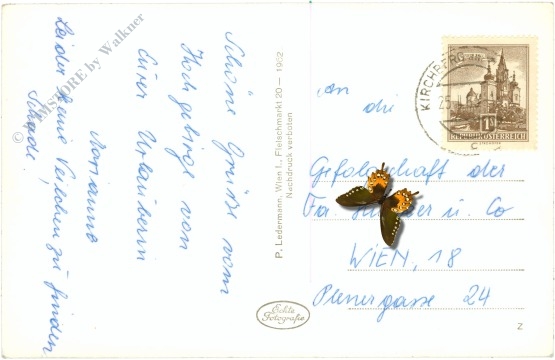 Schöne Grüße vom
Hochgebirge von
Eurer Urlauberin
Marianne
Leider keine Veilchen zu finden
Schade.
© by Walkner
P. Ledermann, Wien I., Fleischmarkt 20 — 1952
Nachdruck verboten
Echte
Fotografie
KIRCHBERG
1S
REPUBLIK ÖSTERREICH
An
die
Gefolgschaft der
Fa. u. Co
WIEN, 18
24
Z